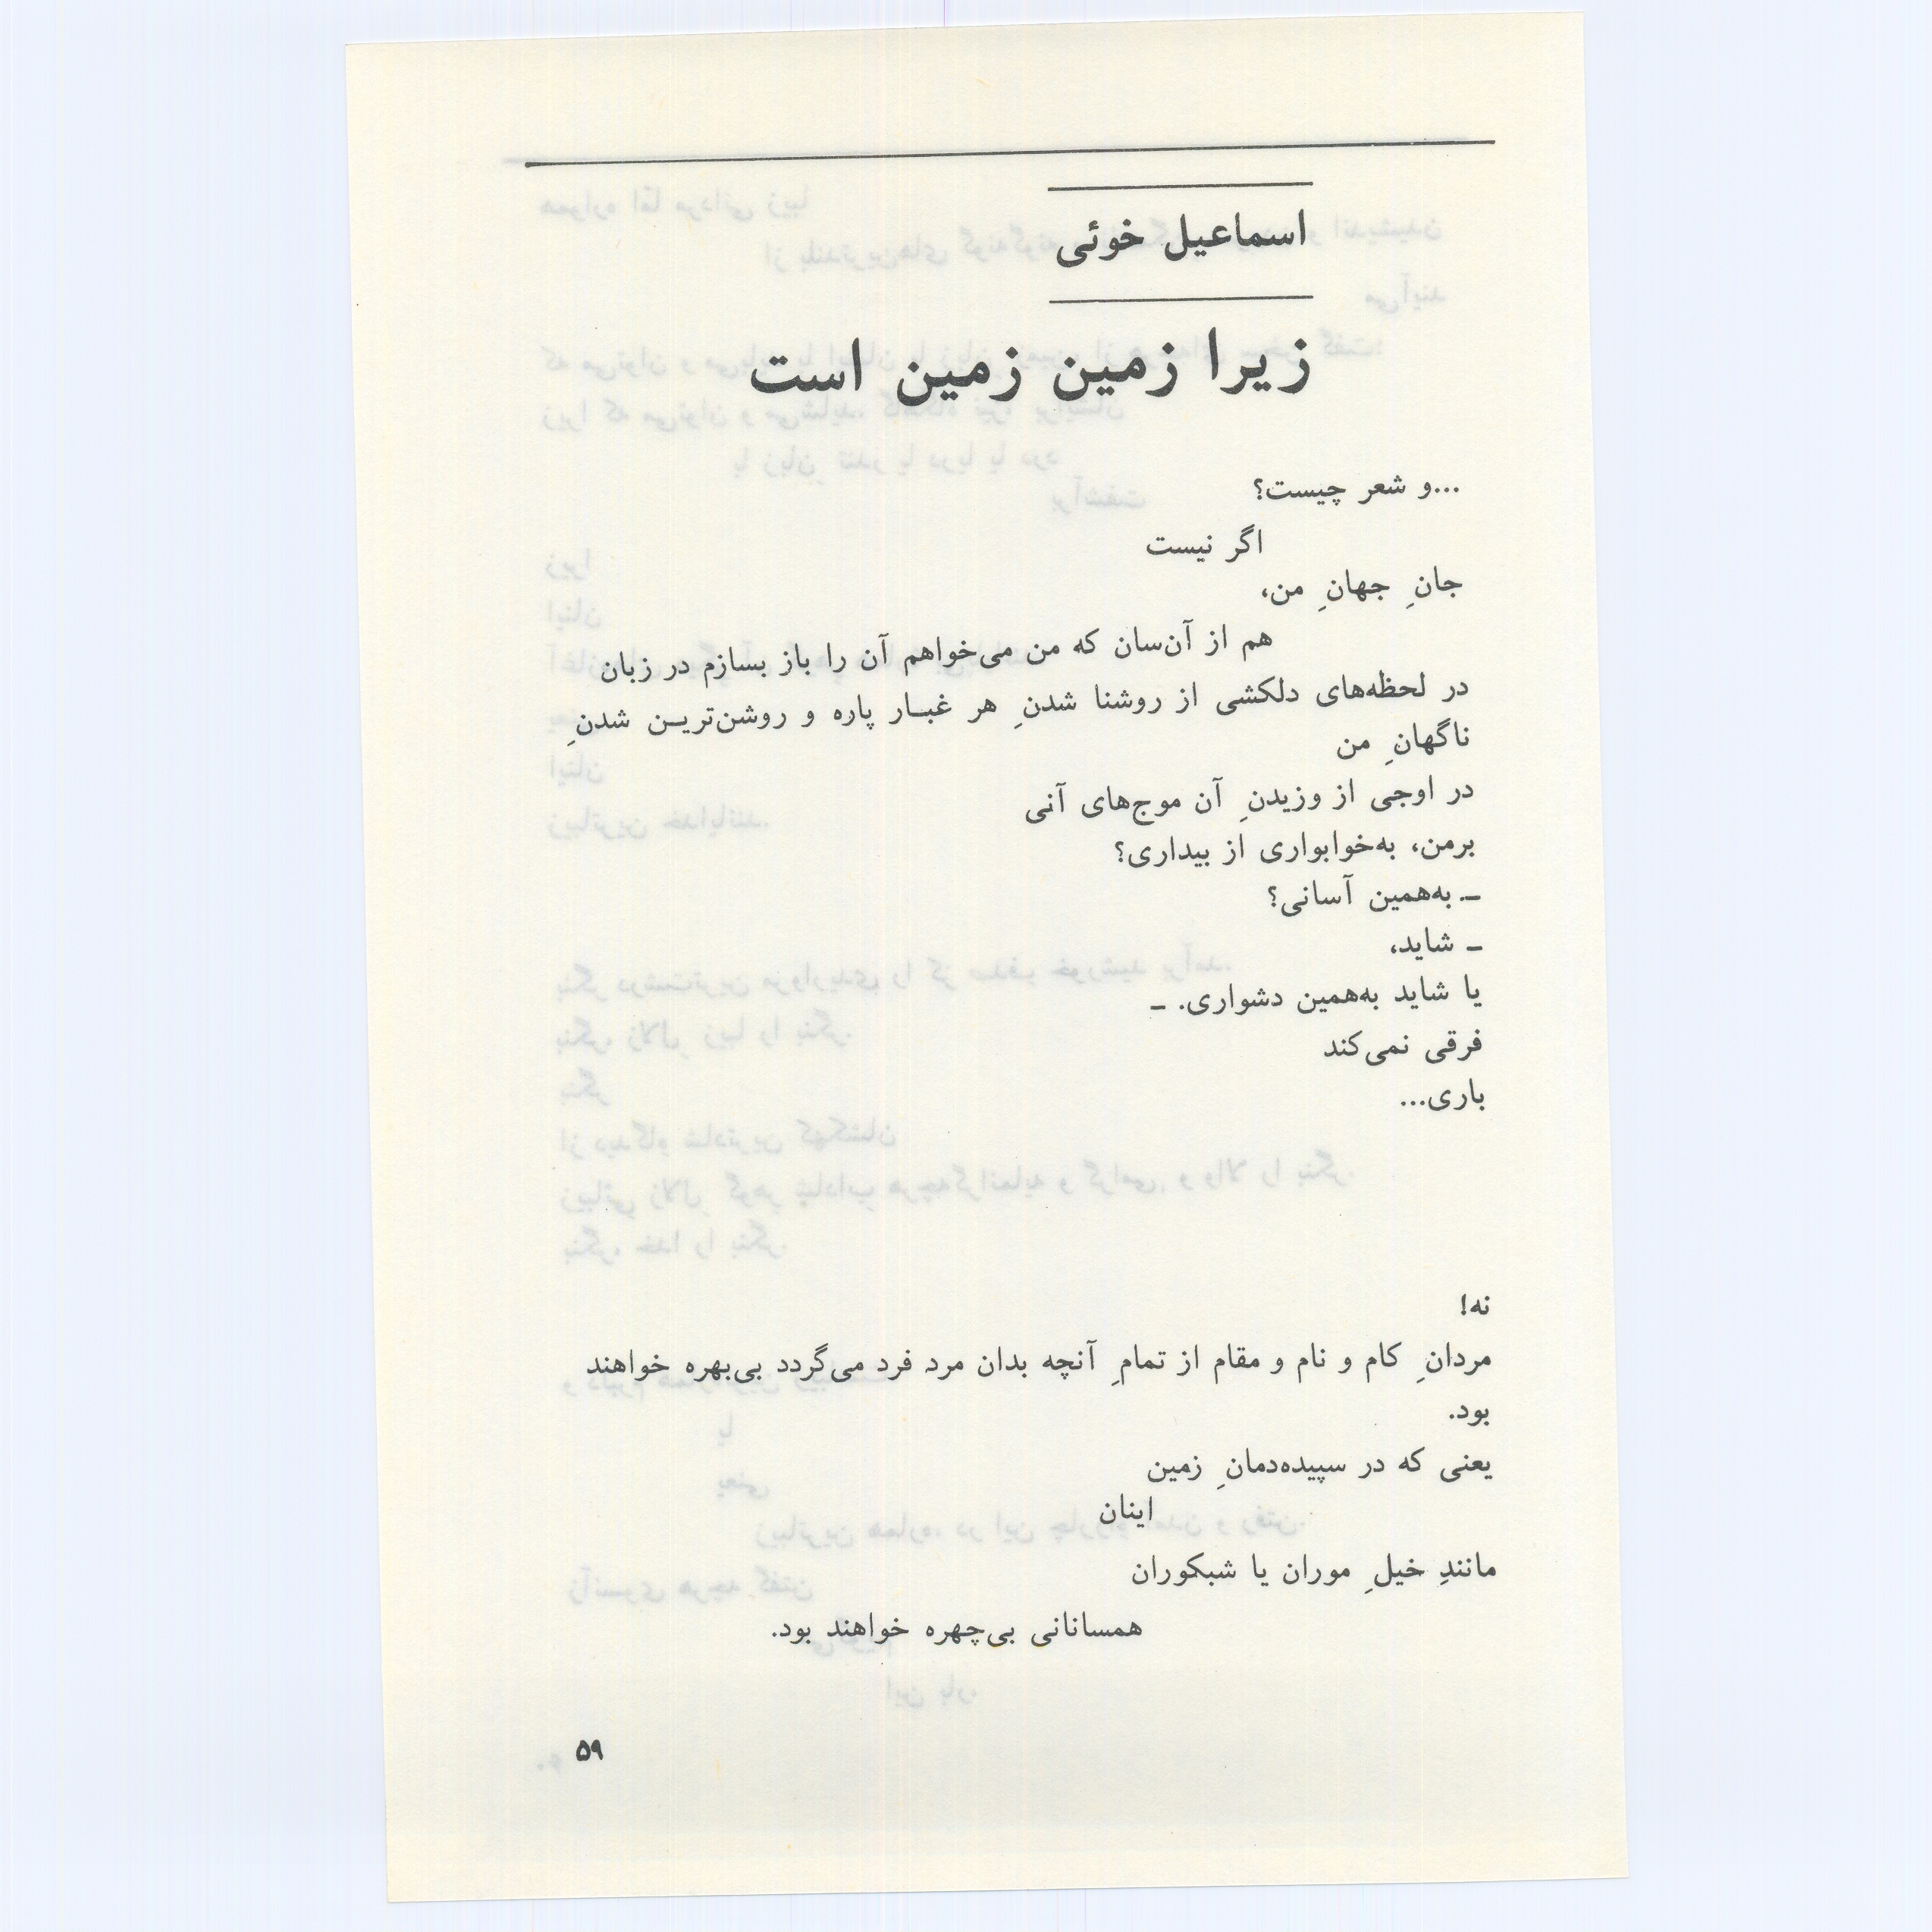 اسماعیل خوئی
زیرا زمین زمین است
...و شعر چیست؟
اگر نیست
جانِ جهانِ من،
هم از آن‌سان که من می‌خواهم آن را باز بسازم در زبان
در لحظه‌های دلکشی از روشنا شدنِ هر غبـار پاره و روشن‌تریـن شدنِ
ناگهانِ من
در اوجی از وزیدنِ آن موج‌های آنی
برمن، به‌خوابواری از بیداری؟
ـ به‌همین آسانی؟
ـ شاید،
یا شاید به‌همین دشواری. ـ
فرقی نمی‌کند
باری...
نه!
مردانِ کام و نام و مقام از تمامِ آنچه بدان مرد فرد می‌گردد بی‌بهره خواهند
بود.
یعنی که در سپیده‌دمانِ زمین
اینان
مانندِ خیلِ موران یا شبکوران
همسانانی بی‌چهره خواهند بود.
۵۹